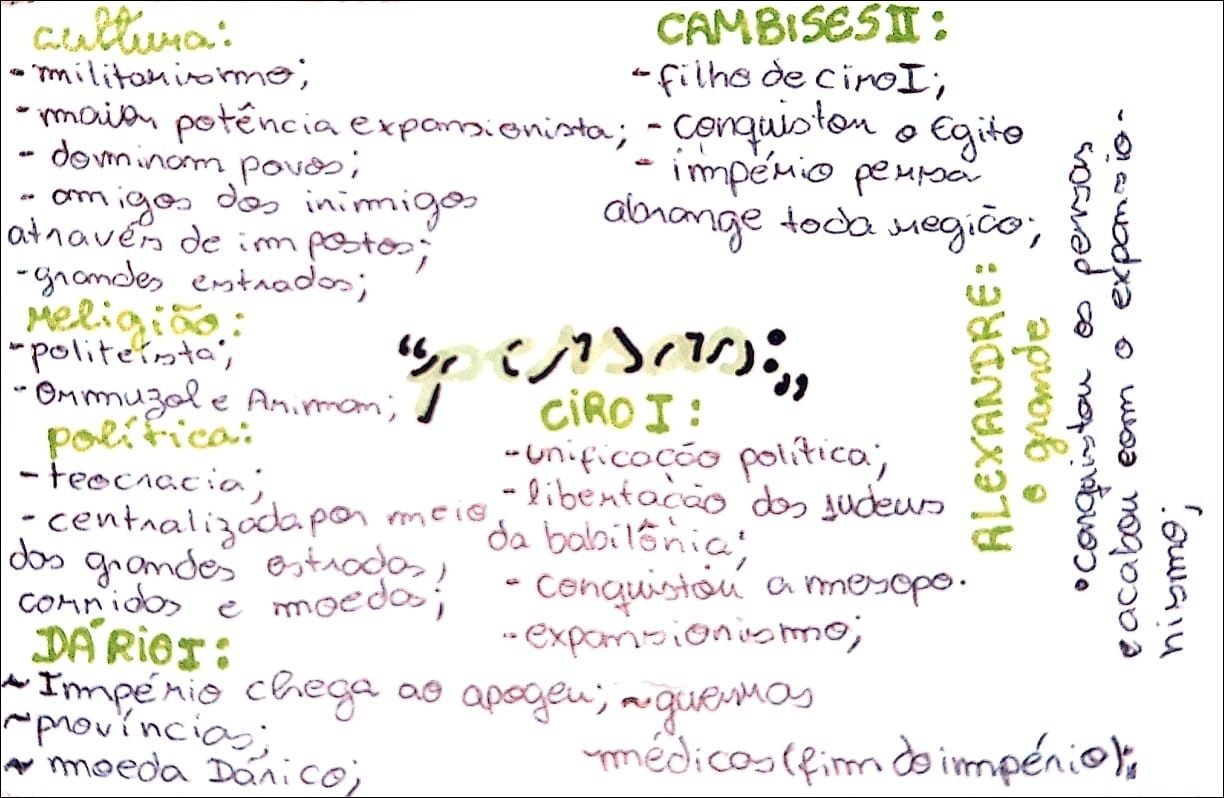 cultura:
- militarismo;
- maior potência expansionista;
- dominam povos;
- amigos dos inimigos
através de impostos;
- grandes estradas;
religião:
- politeísta;
- Ormuzd e Ariman;
política:
- teocracia;
- centralizada por meio
das grandes estradas,
corridos e moedas;
DÁRIO I:
~ Império chega ao apogeu; ~ guerras
médicas (fim do império);
~ províncias;
~ moeda Dárico;
"persas:"
CIRO I:
- unificação política;
- libertação dos judeus
da babilônia;
- conquistou a mesopo.
- expansionismo;
CAMBISES II:
- filho de Ciro I;
- conquistou o Egito
- império persa
abrange toda região;
ALEXANDRE:
o grande
• conquistou os persas
e acabou com o expansio-
nismo;